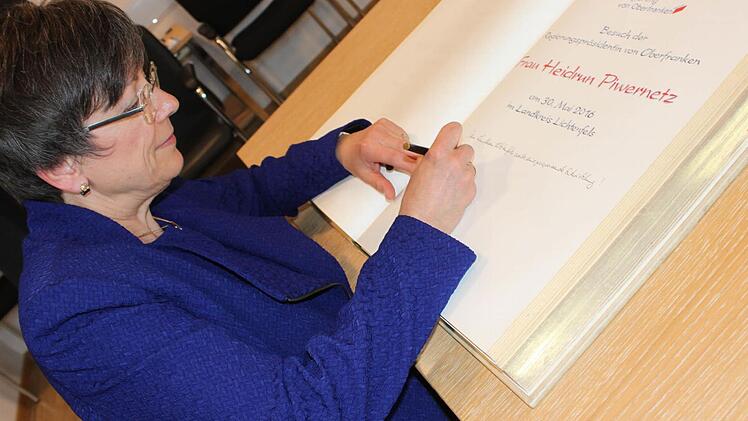 von Oberfranken
Besuch der
Regierungspräsidentin von Oberfranken
Frau Heidrun Piwernetz
am 30. Mai 2016
im Landkreis Lichtenfels